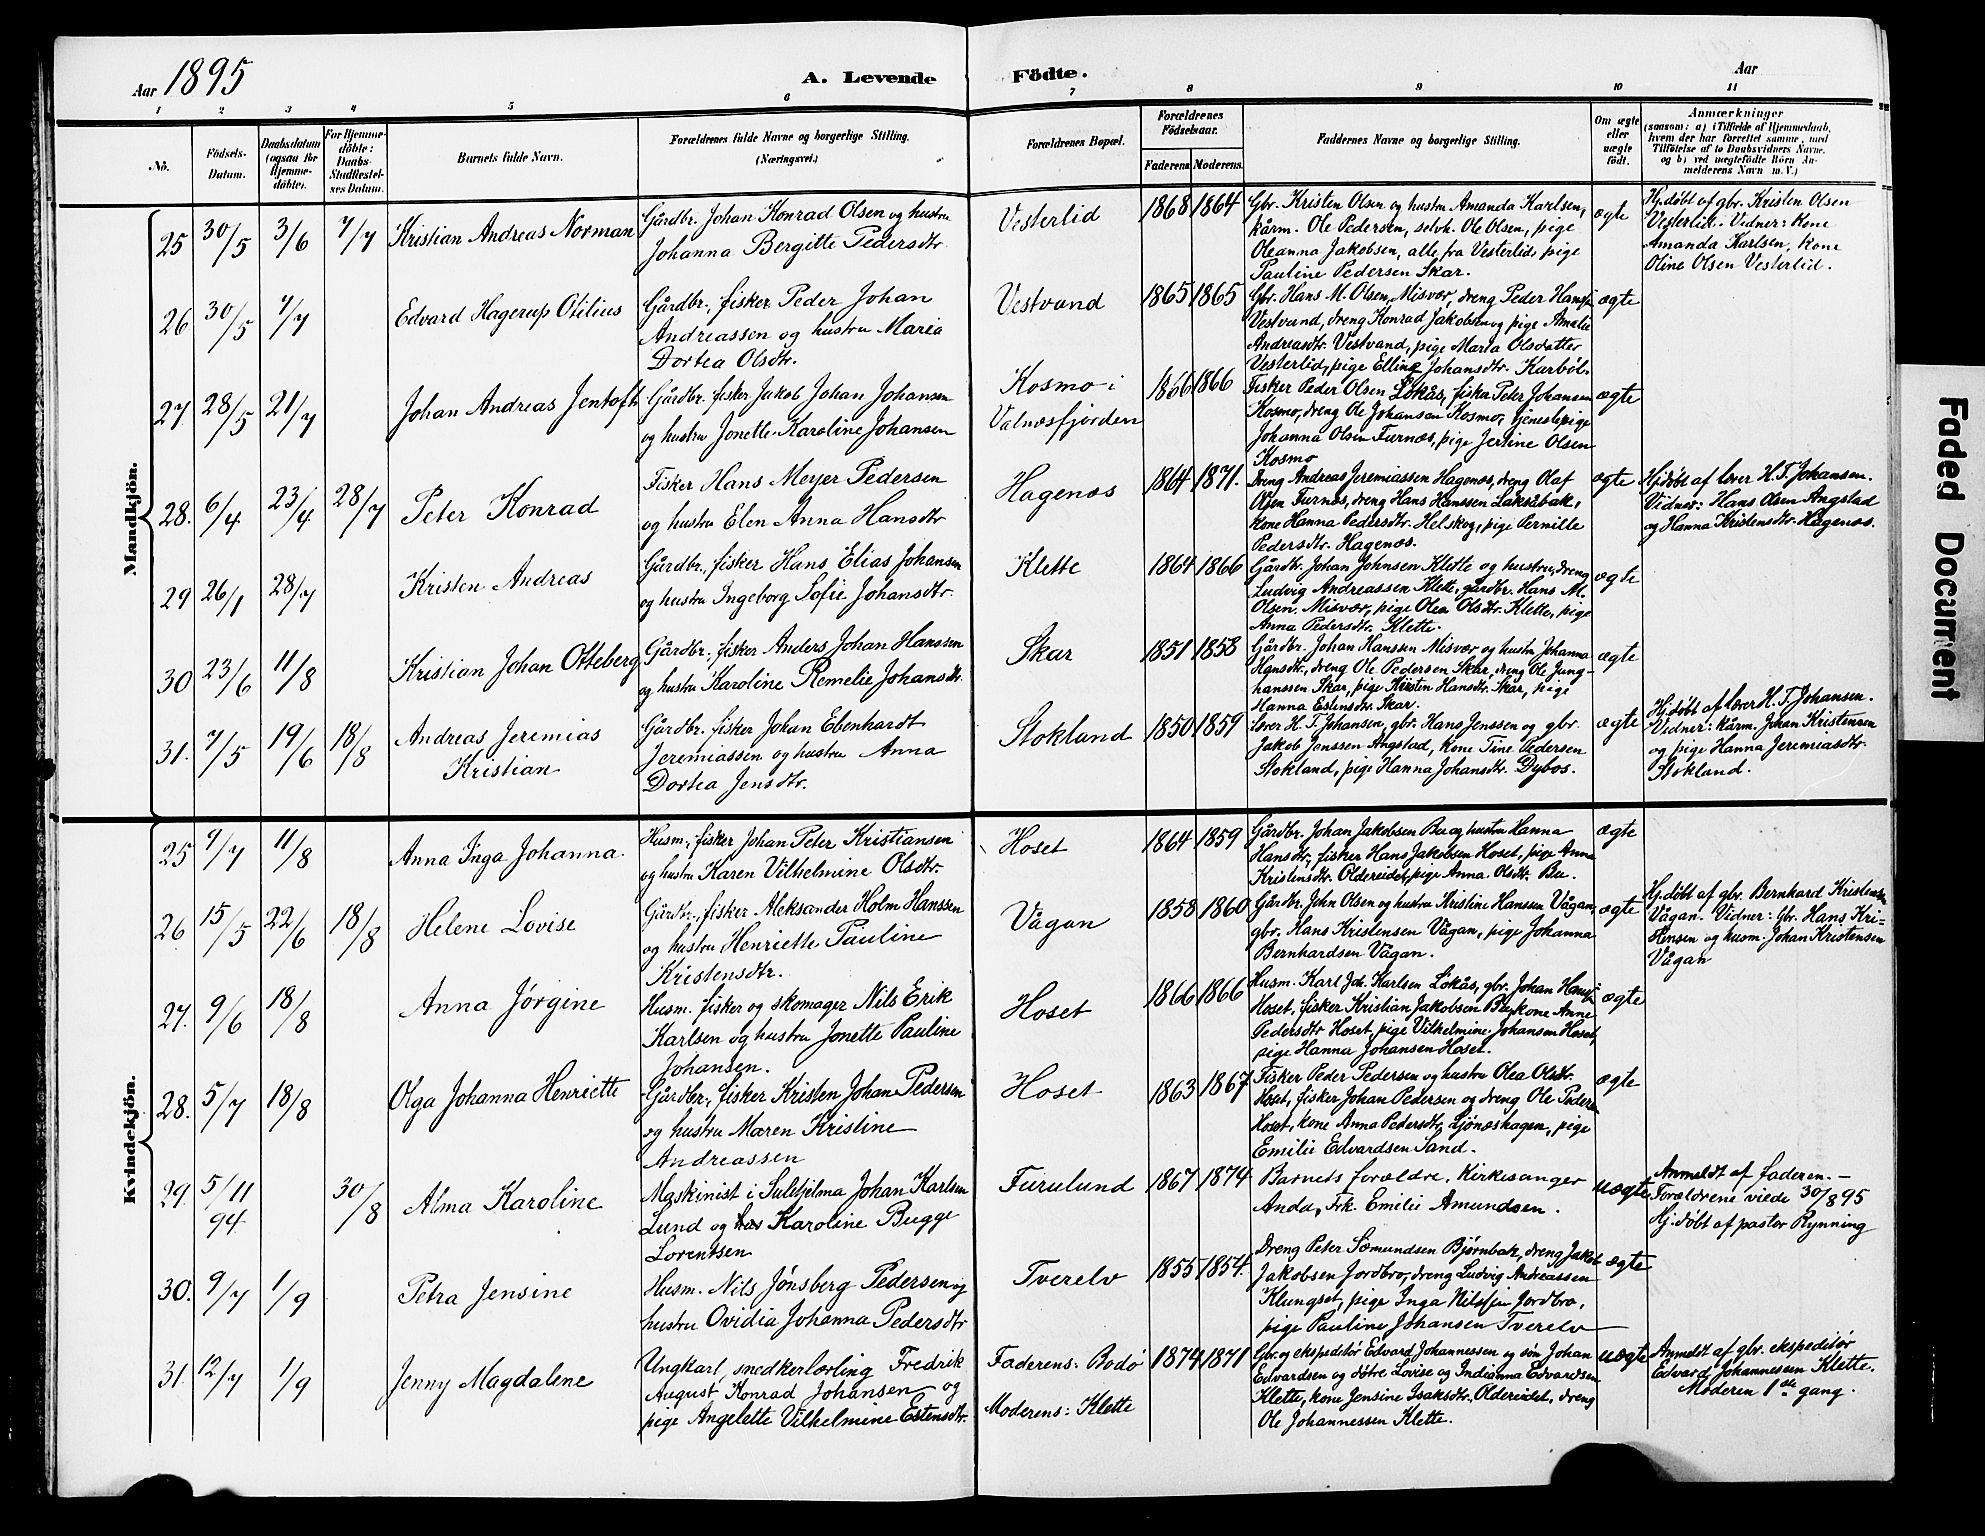 Aar 1895
A. Levende Födte.
Aar
1 2 3 4 5 6 7 8 9 10 11
No.
Födsels-Datum.
Daabsdatum (ogsaa for Hjemme-döbte).
For Hjemme-döbte: Daabs-Stadfæstel-ses Datum.
Barnets fulde Navn.
Forældrenes fulde Navne og borgerlige Stilling.
(Næringsvei.)
Forældrenes Bopæl.
Forældrenes Födselsaar.
Faderens Moderens.
Faddernes Navne og borgerlige Stilling.
Om ægte eller uægte födt.
Anmærkninger
(saasom: a) i Tilfælde af Hjemmedaab,
hvem der har forrettet samme, med
Tilföielse af to Daabsvidners Navne.
og b) ved uægtefödte Börn An-
melderens Navn m. V.)
Mandkjön.
25 30/5 3/6 7/7 Kristian Andreas Norman
Gårdbr. Johan Konrad Olsen og hustru
Johanna Bergitte Pedersdtr.
Vesterlid 1868 1864
Gbr. Kristen Olsen og hustru Amanda Karlsen,
kårm. Ole Pedersen, selvh. Ole Olsen, pige
Oleanna Jakobsen, alle fra Vesterlid, pige
Pauline Pedersen Skar.
ægte
Hj.døbt af gbr. Kristen Olsen
Vesterlid. Vidner: Kone
Amanda Karlsen, kone
Oline Olsen Vesterlid.
26 30/5 7/7 Edvard Hagerup Otilius
Gårdbr., fisker Peder Johan
Andreassen og hustru Maria
Dortea Olsdtr.
Vestvand 1865 1865
Gbr. Hans M. Olsen, Misvær, dreng Peder Hansen
Vestvand, dreng Konrad Jakobsen og pige Amalie
Andreasdtr. Vestvand, pige Maria Olsdatter
Vesterlid, pige Elling Johansdtr. Karbøl.
ægte
27. 28/5 21/7 Johan Andreas Jentoft
Gårdbr. fisker Jakob Johan Johansen
og hustru Jonette Karoline Johansen
Kosmo i
Valnesfjorden
1866 1866
Fisker Peder Olsen Løkås, fisker Peter Johansen
Kosmo, dreng Ole Johansen Kosmo, tjenestepige
Johanna Olsen Furnes, pige Jertine Olsen
Kosmo
ægte
28. 6/4 23/4 28/7 Peter Konrad
Fisker Hans Meyer Pedersen
og hustru Elen Anna Hansdtr
Hagenæs 1864 1871.
Dreng Andreas Jeremiassen Hagenæs, dreng Olaf
Olsen Furnes, dreng Hans Hanssen Laksåbak,
kone Hanna Pedersdtr. Helskog, pige Pernille
Pedersdtr. Hagenæs.
ægte
Hj.døbt af lærer H. T. Johansen.
Vidner: Hans Olsen Angstad
og Hanna Kristensdtr. Hagenæs.
29 26/1 28/7 Kristen Andreas
Gårdbr., fisker Hans Elias Johansen
og hustru Ingeborg Sofie Johansdtr.
Klette 1864 1866
Gårdbr. Johan Johnsen Klette og hustru, dreng
Ludvig Andreassen Klette, gårdbr. Hans M.
Olsen. Misvær, pige Olea Olsdtr. Klette, pige
Anna Pedersdtr. Klette.
ægte
30 23/6 11/8 Kristian Johan Otteberg
Gårdbr. fisker Anders Johan Hanssen
og hustru Karoline Remelie Johansdtr.
Skar 1851 1858
Gårdbr. Johan Hanssen Misvær og hustru Johanna
Hansdtr, dreng Ole Pedersen Skar, dreng Ole Jung-
hanssen Skar, pige Kirsten Hansdtr. Skar, pige
Hanna Estensdtr. Skar.
ægte
31. 7/5 19/6 18/8 Andreas Jeremias
Kristian
Gårdbr. fisker Johan Ebenhardt
Jeremiassen og hustru Anna
Dortea Jensdtr.
Stokland 1850 1859
Lærer H. T. Johansen, gbr. Hans Jenssen og gbr.
Jakob Jonssen Angstad, kone Tine Pedersen
Stokland, pige Hanna Johansdtr. Dybos.
ægte
Hj.døbt af lærer H. T. Johansen.
Vidner: kårm. Johan Kristensen
og pige Hanna Jeremiasdtr.
Stokland.
Kvindekjön.
25 7/7 11/8 Anna Inga Johanna.
Husm., fisker Johan Peter Kristiansen
og hustru Karen Vilhelmine Olsdtr.
Hoset 1864 1859
Gårdbr. Johan Jakobsen Bu og hustru Hanna
Hansdtr, fisker Hans Jakobsen Hoset, pige Anna
Kristensdtr. Oldereidet, pige Anna Olsdtr. Bu.
ægte
26 15/5 22/6 18/8 Helene Lovise
Gårdbr., fisker Aleksander Holm Hanssen
og hustru Henriette Pauline
Kristensdtr.
Vågan 1858 1860
Gårdbr. John Olsen og hustru Kristine Hanssen Vågan,
gbr. Hans Kristensen Vågan, pige Johanna
Bernhardsen Vågan.
ægte
Hj.døbt af gbr. Bernhard Kristensen
Vågan. Vidner: gbr. Hans Kri-
stensen og husm. Johan Kristensen
Vågan
27. 9/6 18/8 Anna Jørgine
Husm. fisker og skomager Nils Erik
Karlsen og hustru Jonette Pauline
Johansen.
Hoset 1866 1866
Husm. Karl Joh. Karlsen Løkås, gbr. Johan Hansen
Hoset, fisker Kristian Jakobsen Bu, kone Anne
Pedersdtr Hoset, pige Vilhelmine Johansen Hoset,
pige Hanna Johansen Hoset.
ægte
28. 5/7 18/8 Olga Johanna Henriette
Gårdbr., fisker Kristen Johan Pedersen
og hustru Maren Kristine
Andreassen
Hoset 1863 1867
Fisker Peder Pedersen og hustru Olea Olsdtr.
Hoset, fisker Johan Pedersen og dreng Ole Peders.
Hoset, kone Anna Pedersdtr. Ljönæshagen, pige
Emilie Edvardsen Sand.
ægte
29. 5/11 94 30/8 Alma Karoline
Maskinist i Sulitjelma Johan Karlsen
Lund og Karoline Bugge
Lorentsen
Furulund 1867 1874
Barnets forældre, Kirkesanger
Anda, Frk. Emilie Amundsen.
uægte
Anmeldt af faderen. –
Forældrene viede 30/8 95
Hj.døbt af pastor Rynning
30. 9/7 1/9 Petra Jensine
Husm. Nils Jønsberg Pedersen og
hustru Ovidia Johanna Pedersdtr
Tverelv 1855 1854.
Dreng Peter Sæmundsen Bjørnbak, dreng Jakob
Jakobsen Jordbro, dreng Ludvig Andreassen
Klungset, pige Inga Nilssen Jordbro,
pige Pauline Johansen Tverelv
ægte
31. 12/7 1/9 Jenny Magdalene
Ungkarl, snedkerlærling Fredrik
August Konrad Johansen og
pige Angelette Vilhelmine Estensdtr.
Faderens: Bodø
Moderens: Klette
1874 1871
Gbr. og ekspeditør Edvard Johannessen og søn Johan
Edvardsen og døtre Lovise og Indianna Edvardsen
Klette, kone Jensine Isaksdtr. Oldereidet, dreng
Ole Johannessen Klette.
uægte
Anmeldt af gbr. ekspeditør
Edvard Johannessen Klette.
Moderen 1ste gang.
Faded Document